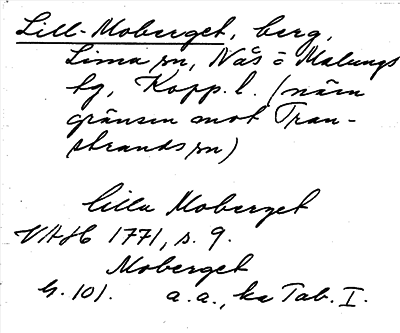 Lill-Moberget, berg,
Lima sn, Nås o Malungs
tg, Kopp. l. (nära
gränsen mot Tran-
strands sn)
Lilla Moberget
VAH 1771, s. 9.
Moberget
G. 101. a.a., ka Tab. I.